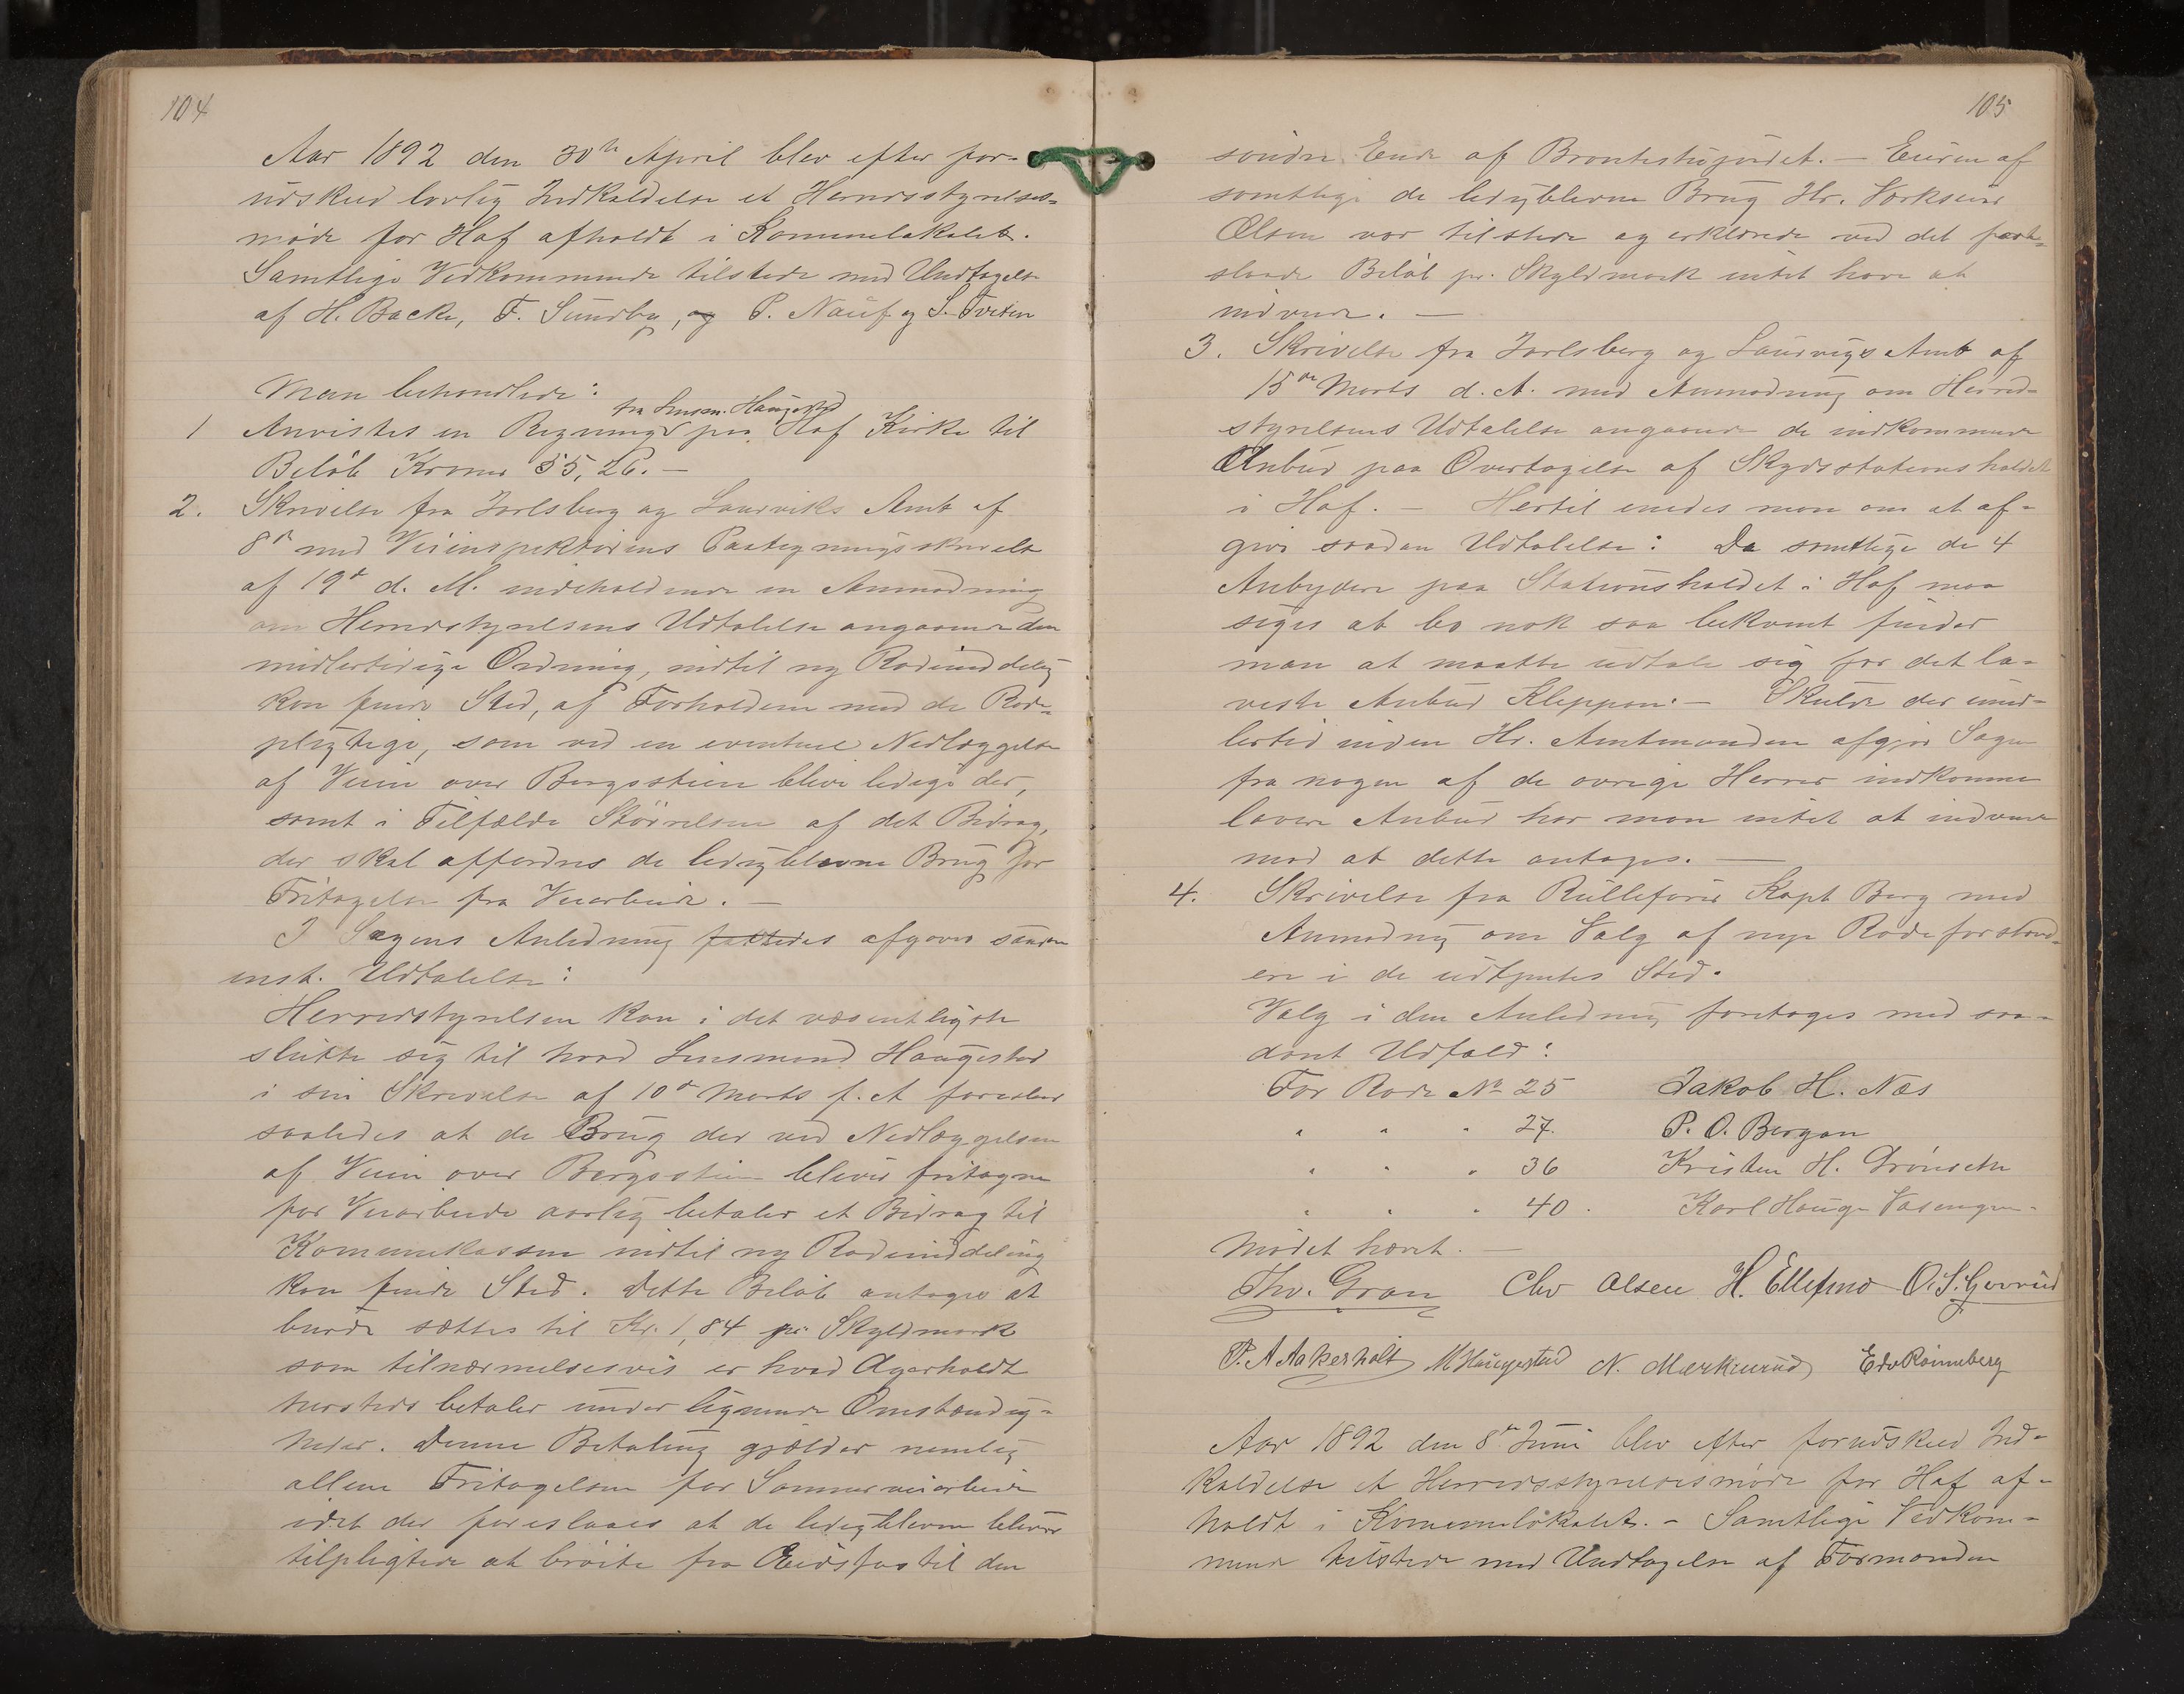 104
Aar 1892 den 30te April blev efter for-
udskued lovlig Indkaldelse et Herredsstyrelses-
møde for Hof afholdt i Kommunelokalet.
Samtlige Vedkommende tilstede med Undtagelse
af H. Backe, F. Sundby, og P. Nauf og S. Tveten
Man behandlede:
fra Lensm. Haugestad
1 Anvistes en Regning paa Hof Kirke til
Beløb Kroner 55,26. —
2. Skrivelse fra Jarlsberg og Laurviks Amt af
8de med Veiinspektørens Paategningsskrivelse
af 19de d. M. indeholdende en Anmodning
om Herredstyrelsens Udtalelse angaaende den
midlertidige Ordning, indtil ny Rodeinddeling
kan finde Sted, af Forholdene med de Rode-
pligtige, som ved en eventuel Nedlæggelse
af Veien over Bergsstien blive ledige der,
samt i Tilfælde Størrelsen af det Bidrag,
der skal affordres de ledigblevne Brug for
Fritagelse fra Veiarbeide. —
I Sagens Anledning fattedes afgaves saadan
enst. Udtalelse:
Herredstyrelsen kan i det væsentligste
slutte sig til hvad Lensmand Haugestad
i sin Skrivelse af 10de Marts f. A foreslaar
saaledes at de Brug der ved Nedlæggelsen
af Veien over Bergsstien bliver fritagne
for Veiarbeide aarlig betaler et Bidrag til
Kommunekassen indtil ny Rodeinddeling
kan finde Sted. Dette Beløb antages at
burde sættes til Kr. 1,84 pr. Skyldmark
som tilnærmelsesvis er hvad Agerholdt
betaler under lignende Omstændig-
heder. Denne Betaling gjælder nemlig
allene Fritagelsen for Sommerveiarbeide
idet der foreslaaes at de ledigblevne bliver
tilpligtede at brøite fra Eidsfos til den
105
søndre Ende af . — Eieren af
samtlige de ledigblevne Brug Hr. Værkseier
Olsen var tilstede og erklærede ved det fore-
slaaede Beløb pr. Skyldmark intet have at
indvende. —
3. Skrivelse fra Jarlsberg og Laurvigs Amt af
15de Marts d. A. med Anmodning om Herred-
styrelsens Udtalelse angaaende de indkommende
Anbud paa Overtagelse af Skydsstationsholdet
i Hof. — Hertil enedes man om at af-
give saadan Udtalelse: Da samtlige de 4
Anbydere paa Stationsholdet i Hof maa
siges at bo nok saa bekvemt finder
man at maatte udtale sig for det la-
veste Anbud Kleppan. — Skulde der imid-
lertid inden Hr. Amtmanden afgjør Sagen
fra nogen af de øvrige Herrer indkomme
lavere Anbud har man intet at indvende
mod at dette antages. —
4. Skrivelse fra Rullefører Kapt Berg med
Anmodning om Valg af nye Rodeforstand-
ere i de udtjentes Sted.
Valg i den Anledning foretoges med saa-
dant Udfald:
For Rode No 25 Jakob H. Næs
" " " 27. P. O. Bergan
" " " 36 Kristen H. Grønseth
" " " 40. Karl Haug Vasengen.
Mødet hævet. —
Thv. Gran Chr Olsen H. Ellefmo O. S. Gjerrud
P. A Aakerholt M Haugestad N. Mærkerud Edv Rønneberg
Aar 1892 den 8de Juni blev efter forudskued Ind-
kaldelse et Herredsstyrelsesmøde for Hof af-
holdt i Kommunelokalet. — Samtlige Vedkom-
mende tilstede med Undtagelse af Formanden